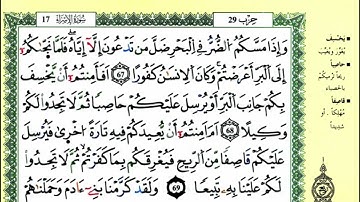 17 سورة الإسراء حزب 29
وَإِذَا مَسَّكُمُ الضُّرُّ فِي الْبَحْرِ ضَلَّ مَن تَدْعُونَ إِلَّا إِيَّاهُ فَلَمَّا نَجَّىٰكُمْ
إِلَى الْبَرِّ أَعْرَضْتُمْ وَكَانَ الْإِنسَٰنُ كَفُورًا 67 أَفَأَمِنتُمْ أَن يَخْسِفَ
بِكُمْ جَانِبَ الْبَرِّ أَوْ يُرْسِلَ عَلَيْكُمْ حَاصِبًا ثُمَّ لَا تَجِدُوا لَكُمْ
وَكِيلًا 68 أَمْ أَمِنتُمْ أَن يُعِيدَكُمْ فِيهِ تَارَةً أُخْرَىٰ فَيُرْسِلَ
عَلَيْكُمْ قَاصِفًا مِّنَ الرِّيحِ فَيُغْرِقَكُم بِمَا كَفَرْتُمْ ثُمَّ لَا تَجِدُوا
لَكُمْ عَلَيْنَا بِهِ تَبِيعًا 69 وَلَقَدْ كَرَّمْنَا بَنِي ءَادَمَ وَحَمَلْنَٰهُمْ
يخسف
يغور ويغيب
حاصبا
ريحا ترميكم
بالحصباء
قاصفا
مهلكا، أو
شديدا